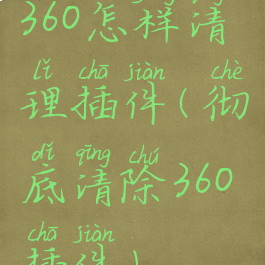 360怎样清
lǐ chā jiàn chè
理插件(彻
dǐ qīng chú
底清除360
chā jiàn
插件)